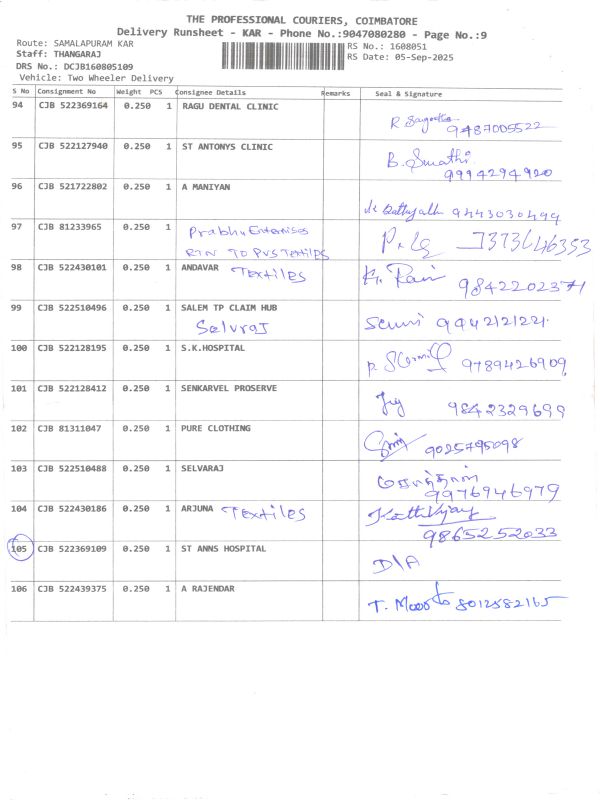 THE PROFESSIONAL COURIERS, COIMBATORE
Delivery Runsheet - KAR - Phone No.:9047080280 - Page No.:9
Route: SAMALAPURAM KAR
RS No.: 1608051
Staff: THANGARAJ
RS Date: 05-Sep-2025
DRS No.: DCJB160805109
Vehicle: Two Wheeler Delivery
S No Consignment No Weight PCS Consignee Details Remarks Seal & Signature
94 CJB 522369164 0.250 1 RAGU DENTAL CLINIC
9487005522
95 CJB 522127940 0.250 1 ST ANTONYS CLINIC
B. Smathi
9994294920
96 CJB 521722802 0.250 1 A MANIYAN
9443030499
97 CJB 81233965 0.250 1 Prabhu Enterprises
RTN TO PVS Textiles
7373646353
98 CJB 522430101 0.250 1 ANDAVAR Textiles
K. Ravi 9842202371
99 CJB 522510496 0.250 1 SALEM TP CLAIM HUB
Selvraj
9442121221
100 CJB 522128195 0.250 1 S.K.HOSPITAL
9789426909
101 CJB 522128412 0.250 1 SENKARVEL PROSERVE
9842329699
102 CJB 81311047 0.250 1 PURE CLOTHING
9025795098
103 CJB 522510488 0.250 1 SELVARAJ
9976946979
104 CJB 522430186 0.250 1 ARJUNA Textiles
9865252033
105 CJB 522369109 0.250 1 ST ANNS HOSPITAL
D\A
106 CJB 522439375 0.250 1 A RAJENDAR
8012582165